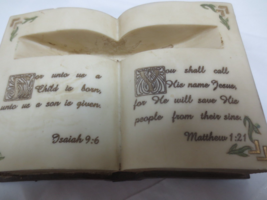 For unto us a
Child is born,
unto us a son is given.
Isaiah 9:6
You shall call
His name Jesus,
for He will save His
people from their sins.
Matthew 1:21